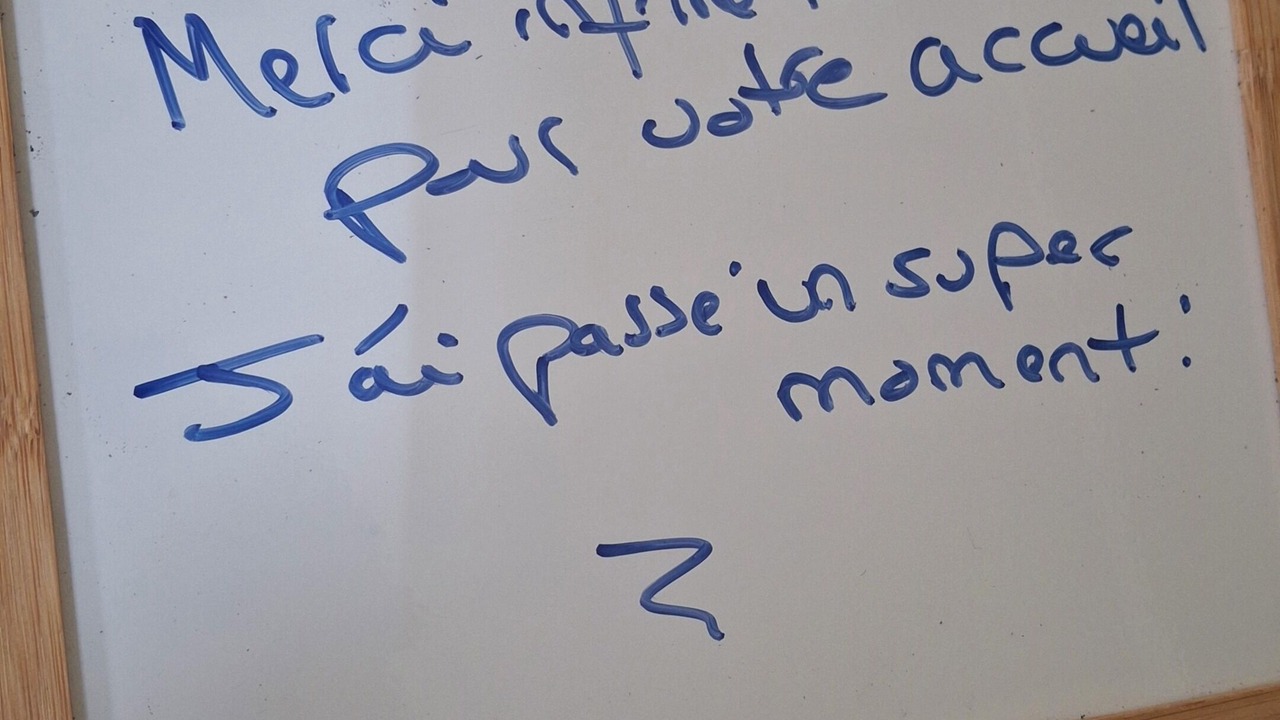 Merci
pour votre accueil
J'ai passé un super
moment!